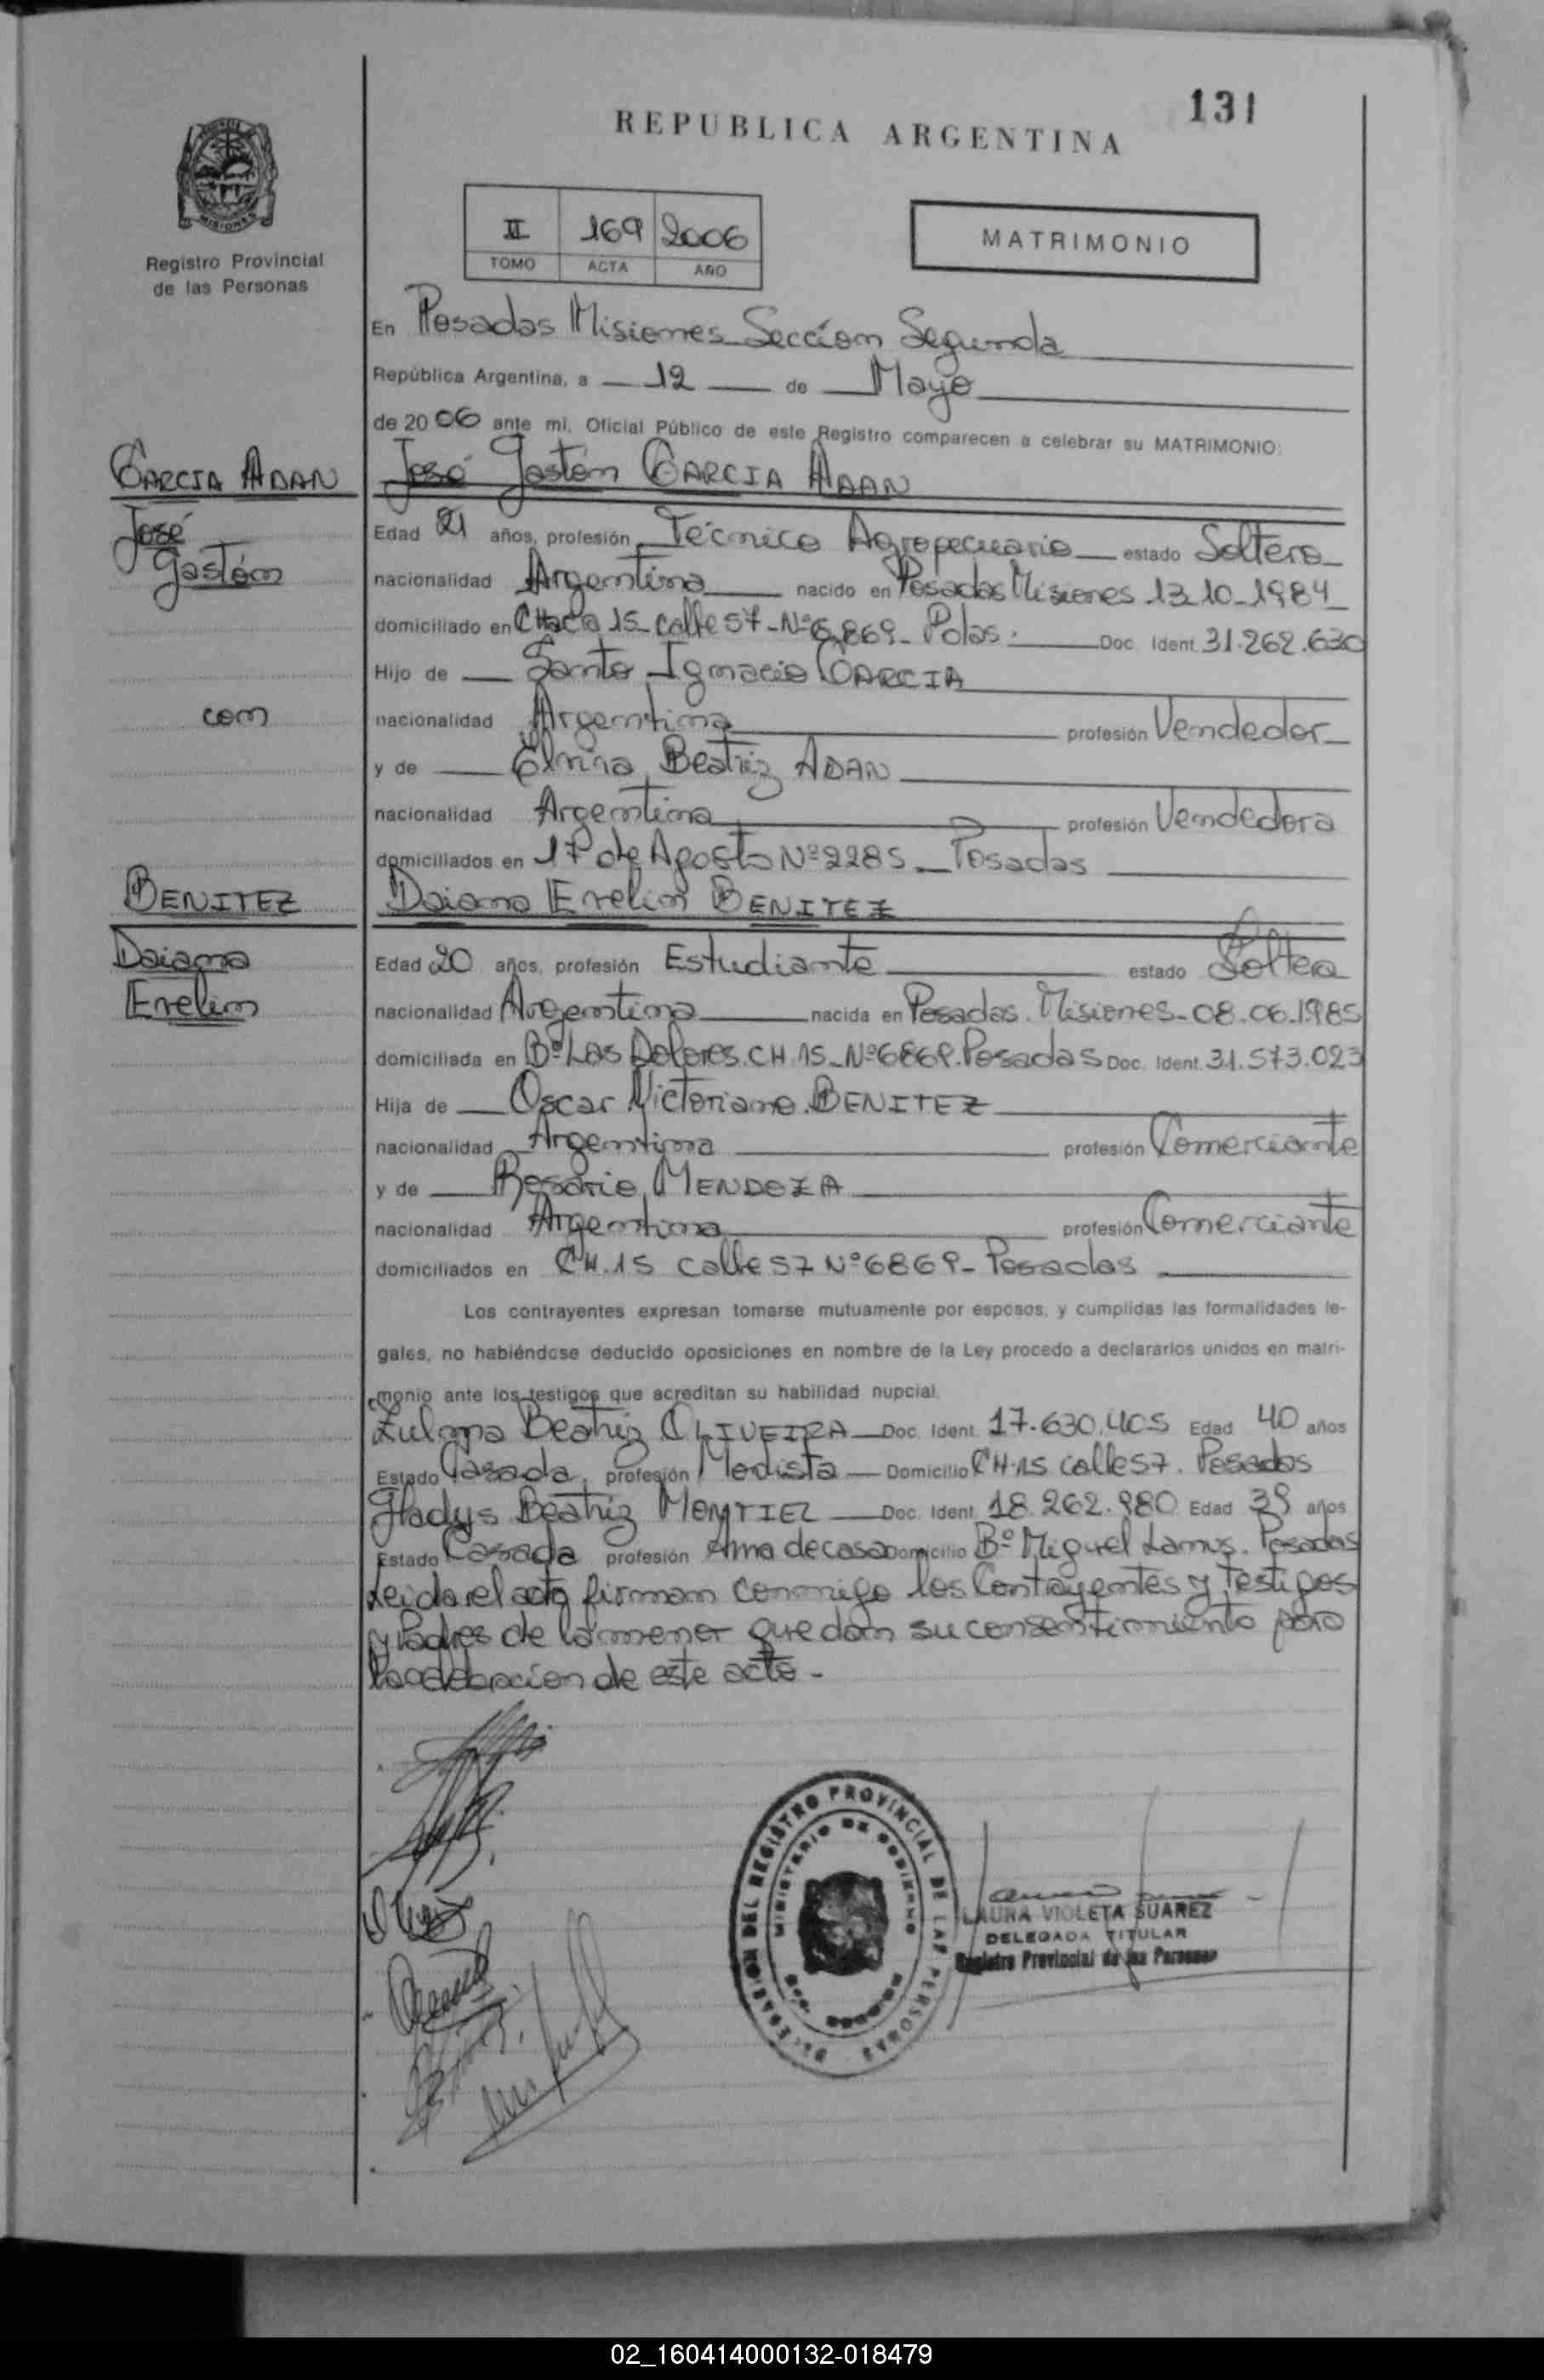 131
REPUBLICA ARGENTINA
MISIONES
Registro Provincial
de las Personas
II 169 2006
TOMO ACTA AÑO
MATRIMONIO
En Posadas Misiones Sección Segunda
República Argentina, a 12 de Mayo
de 2006 ante mi, Oficial Público de este Registro comparecen a celebrar su MATRIMONIO:
GARCIA ADAN José Gastón GARCIA ADAN
José
Gastón
Edad 21 años, profesión Técnico Agropecuario estado Soltero
nacionalidad Argentina nacido en Posadas Misiones 13-10-1984
domiciliado en CHacra 15-calle 57-Nº6.869- Pdas. Doc. Ident. 31.262.630
Hijo de Santo Ignacio GARCIA
con
nacionalidad Argentina profesión Vendedor
y de Elvira Beatriz ADAN
nacionalidad Argentina profesión Vendedora
domiciliados en 17 de Agosto Nº2285 - Posadas
BENITEZ Daiana Evelin BENITEZ
Daiana
Evelin
Edad 20 años, profesión Estudiante estado Soltera
nacionalidad Argentina nacida en Posadas. Misiones-08-06-1985
domiciliada en Bº Los Dolores. CH. 15-Nº6869. Posadas Doc. Ident. 31.573.023
Hija de Oscar Victoriano BENITEZ
nacionalidad Argentina profesión Comerciante
y de Rosario MENDOZA
nacionalidad Argentina profesión Comerciante
domiciliados en CH.15 calle 57 Nº6869- Posadas
Los contrayentes expresan tomarse mutuamente por esposos, y cumplidas las formalidades le-
gales, no habiéndose deducido oposiciones en nombre de la Ley procedo a declararlos unidos en matri-
monio ante los testigos que acreditan su habilidad nupcial.
Zulma Beatriz OLIVEIRA Doc. Ident. 17.630.405 Edad 40 años
Estado Casada. profesión Modista Domicilio CH.15 calle 57. Posadas
Gladys Beatriz MONTIEL Doc. Ident. 18.262.980 Edad 39 años
Estado Casada profesión Ama de casa Domicilio Bº Miguel Lanus. Posadas
Leida el acta firman conmigo los Contrayentes y Testigos
y Padres de la menor que dan su consentimiento para
la celebracion de este acto-
DELEGACION DEL REGISTRO PROVINCIAL DE LAS PERSONAS
MINISTERIO DE GOBIERNO
LAURA VIOLETA SUAREZ
DELEGADA TITULAR
Registro Provincial de las Personas
02_160414000132-018479